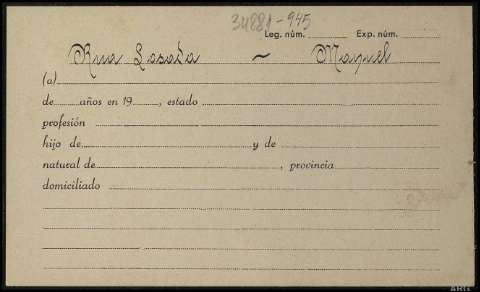 34881-945
Leg. núm. Exp. núm.
Rua Losada ~ Manuel
(a)
de años en 19 , estado
profesión
hijo de y de
natural de , provincia
domiciliado